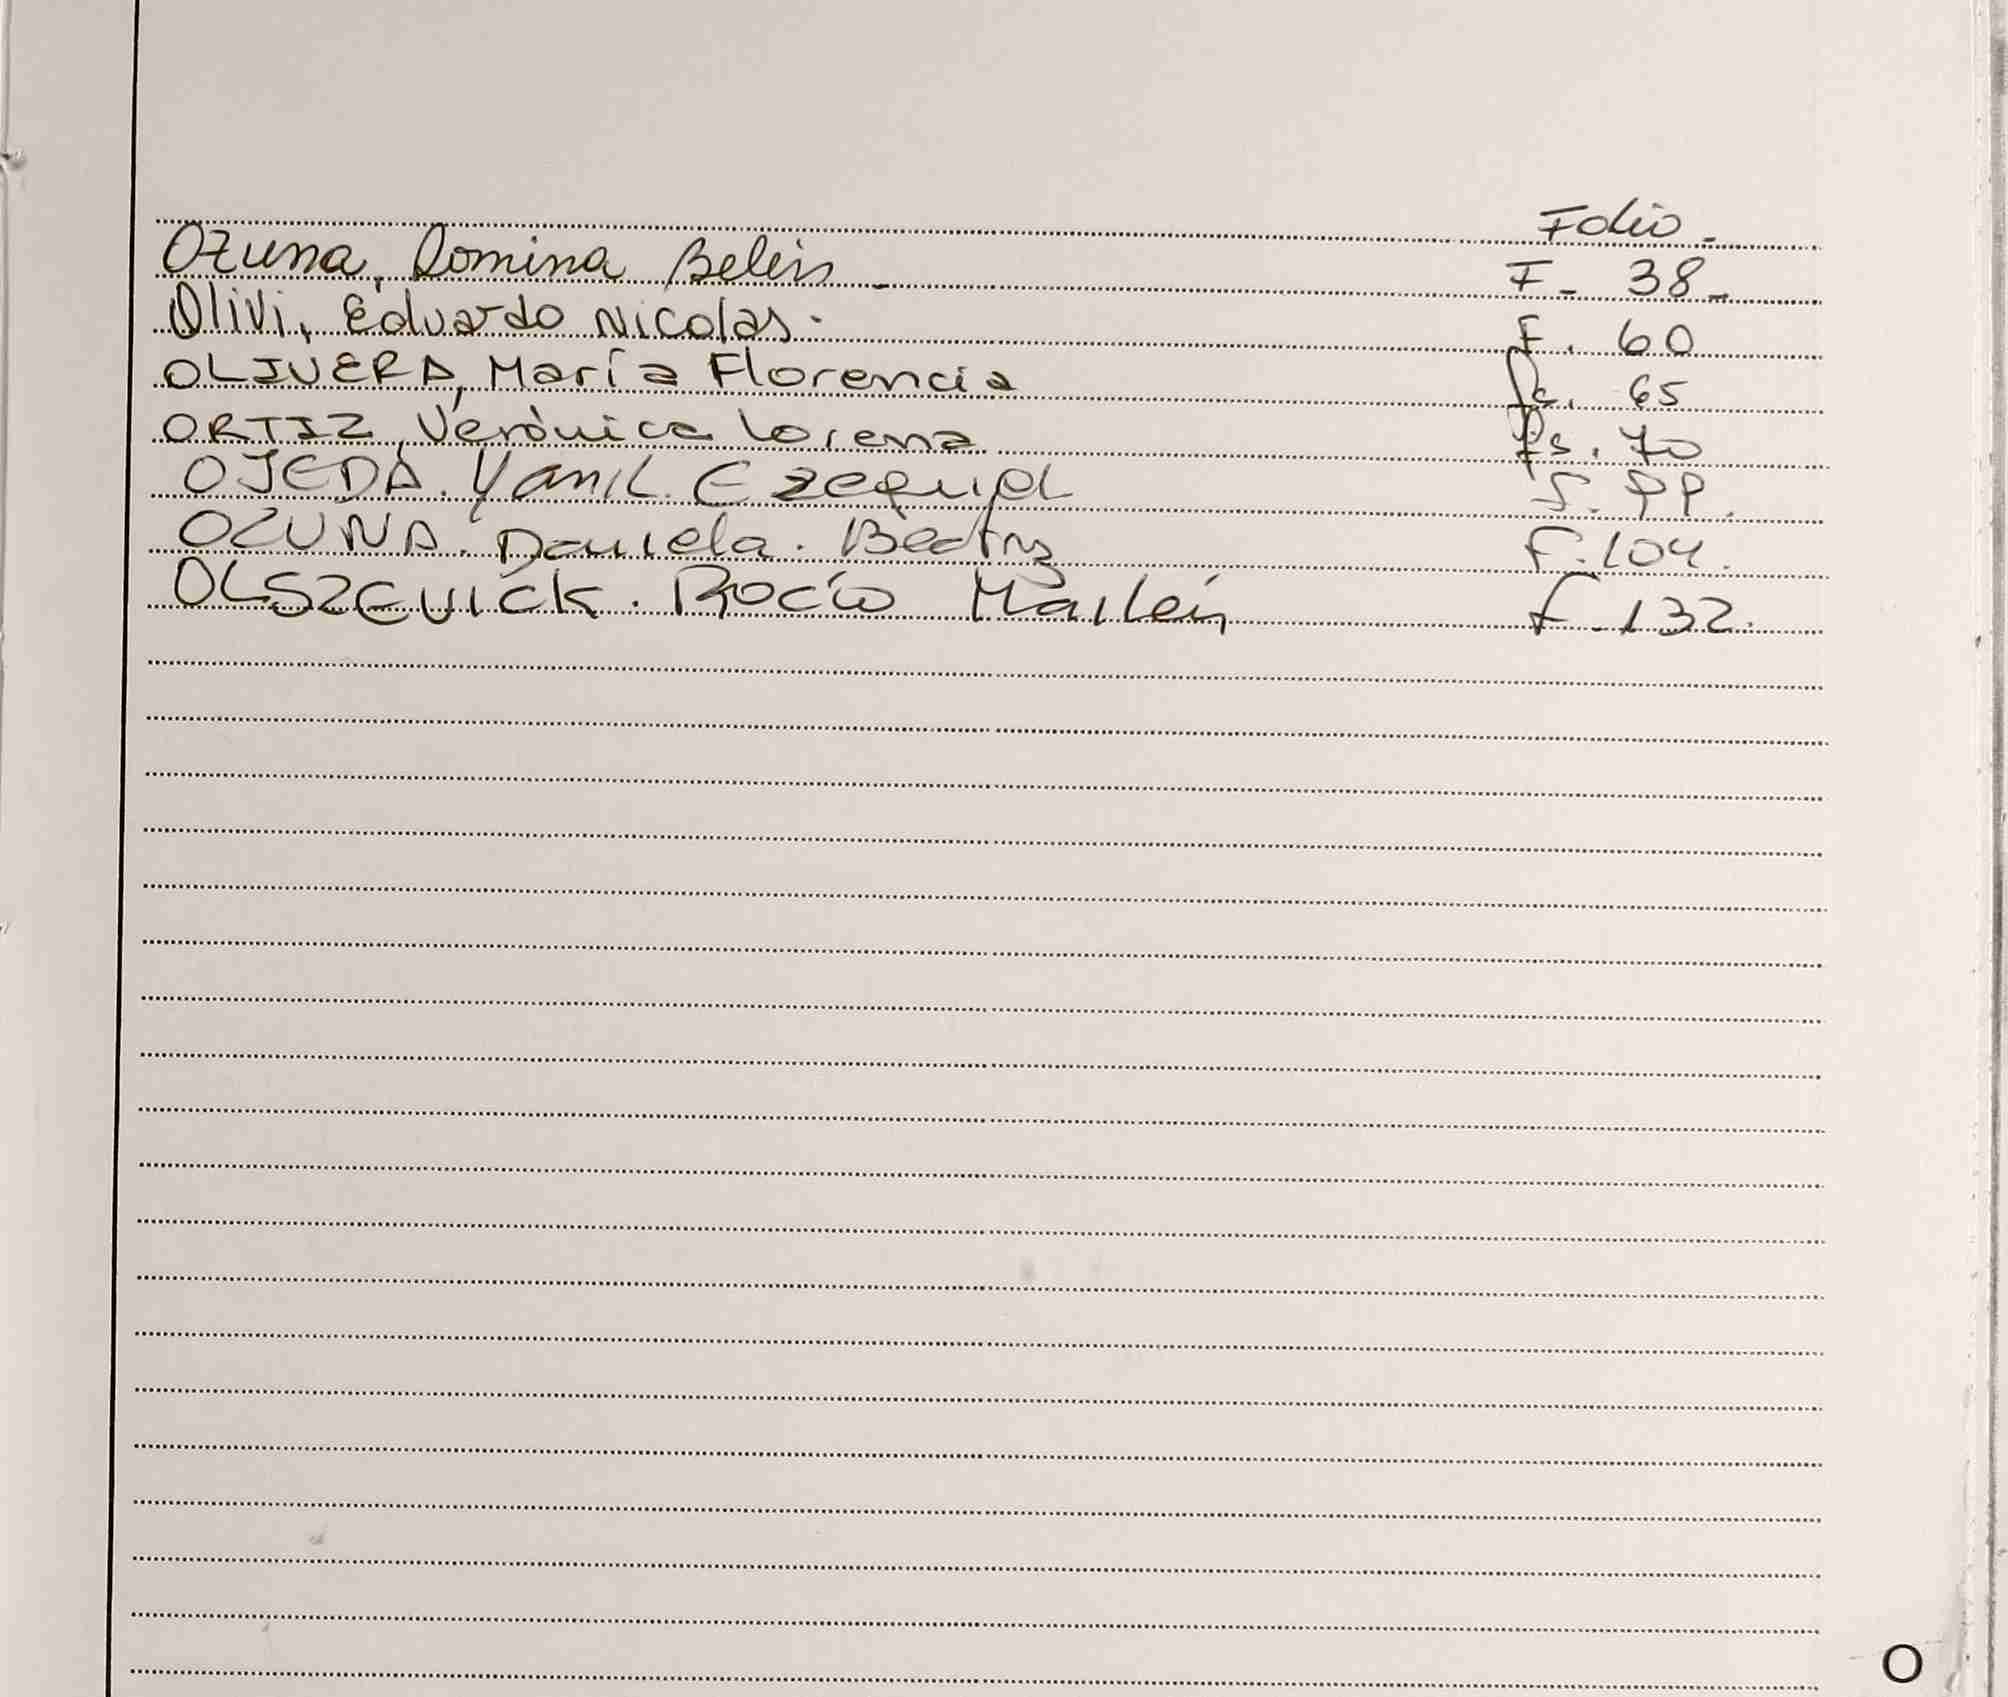 Folio.
Ozuna, Romina Belén F- 38-
Olivi, Eduardo Nicolas. F. 60
OLIVERA, María Florencia fs. 65
ORTIZ, Verónica Lorena fs. 70
OJEDA. Yamil Ezequiel f. 99.
OZUNA. Daniela. Beatriz F. 104.
OLSZEVICK. Rocío Marlén f. 132.
O